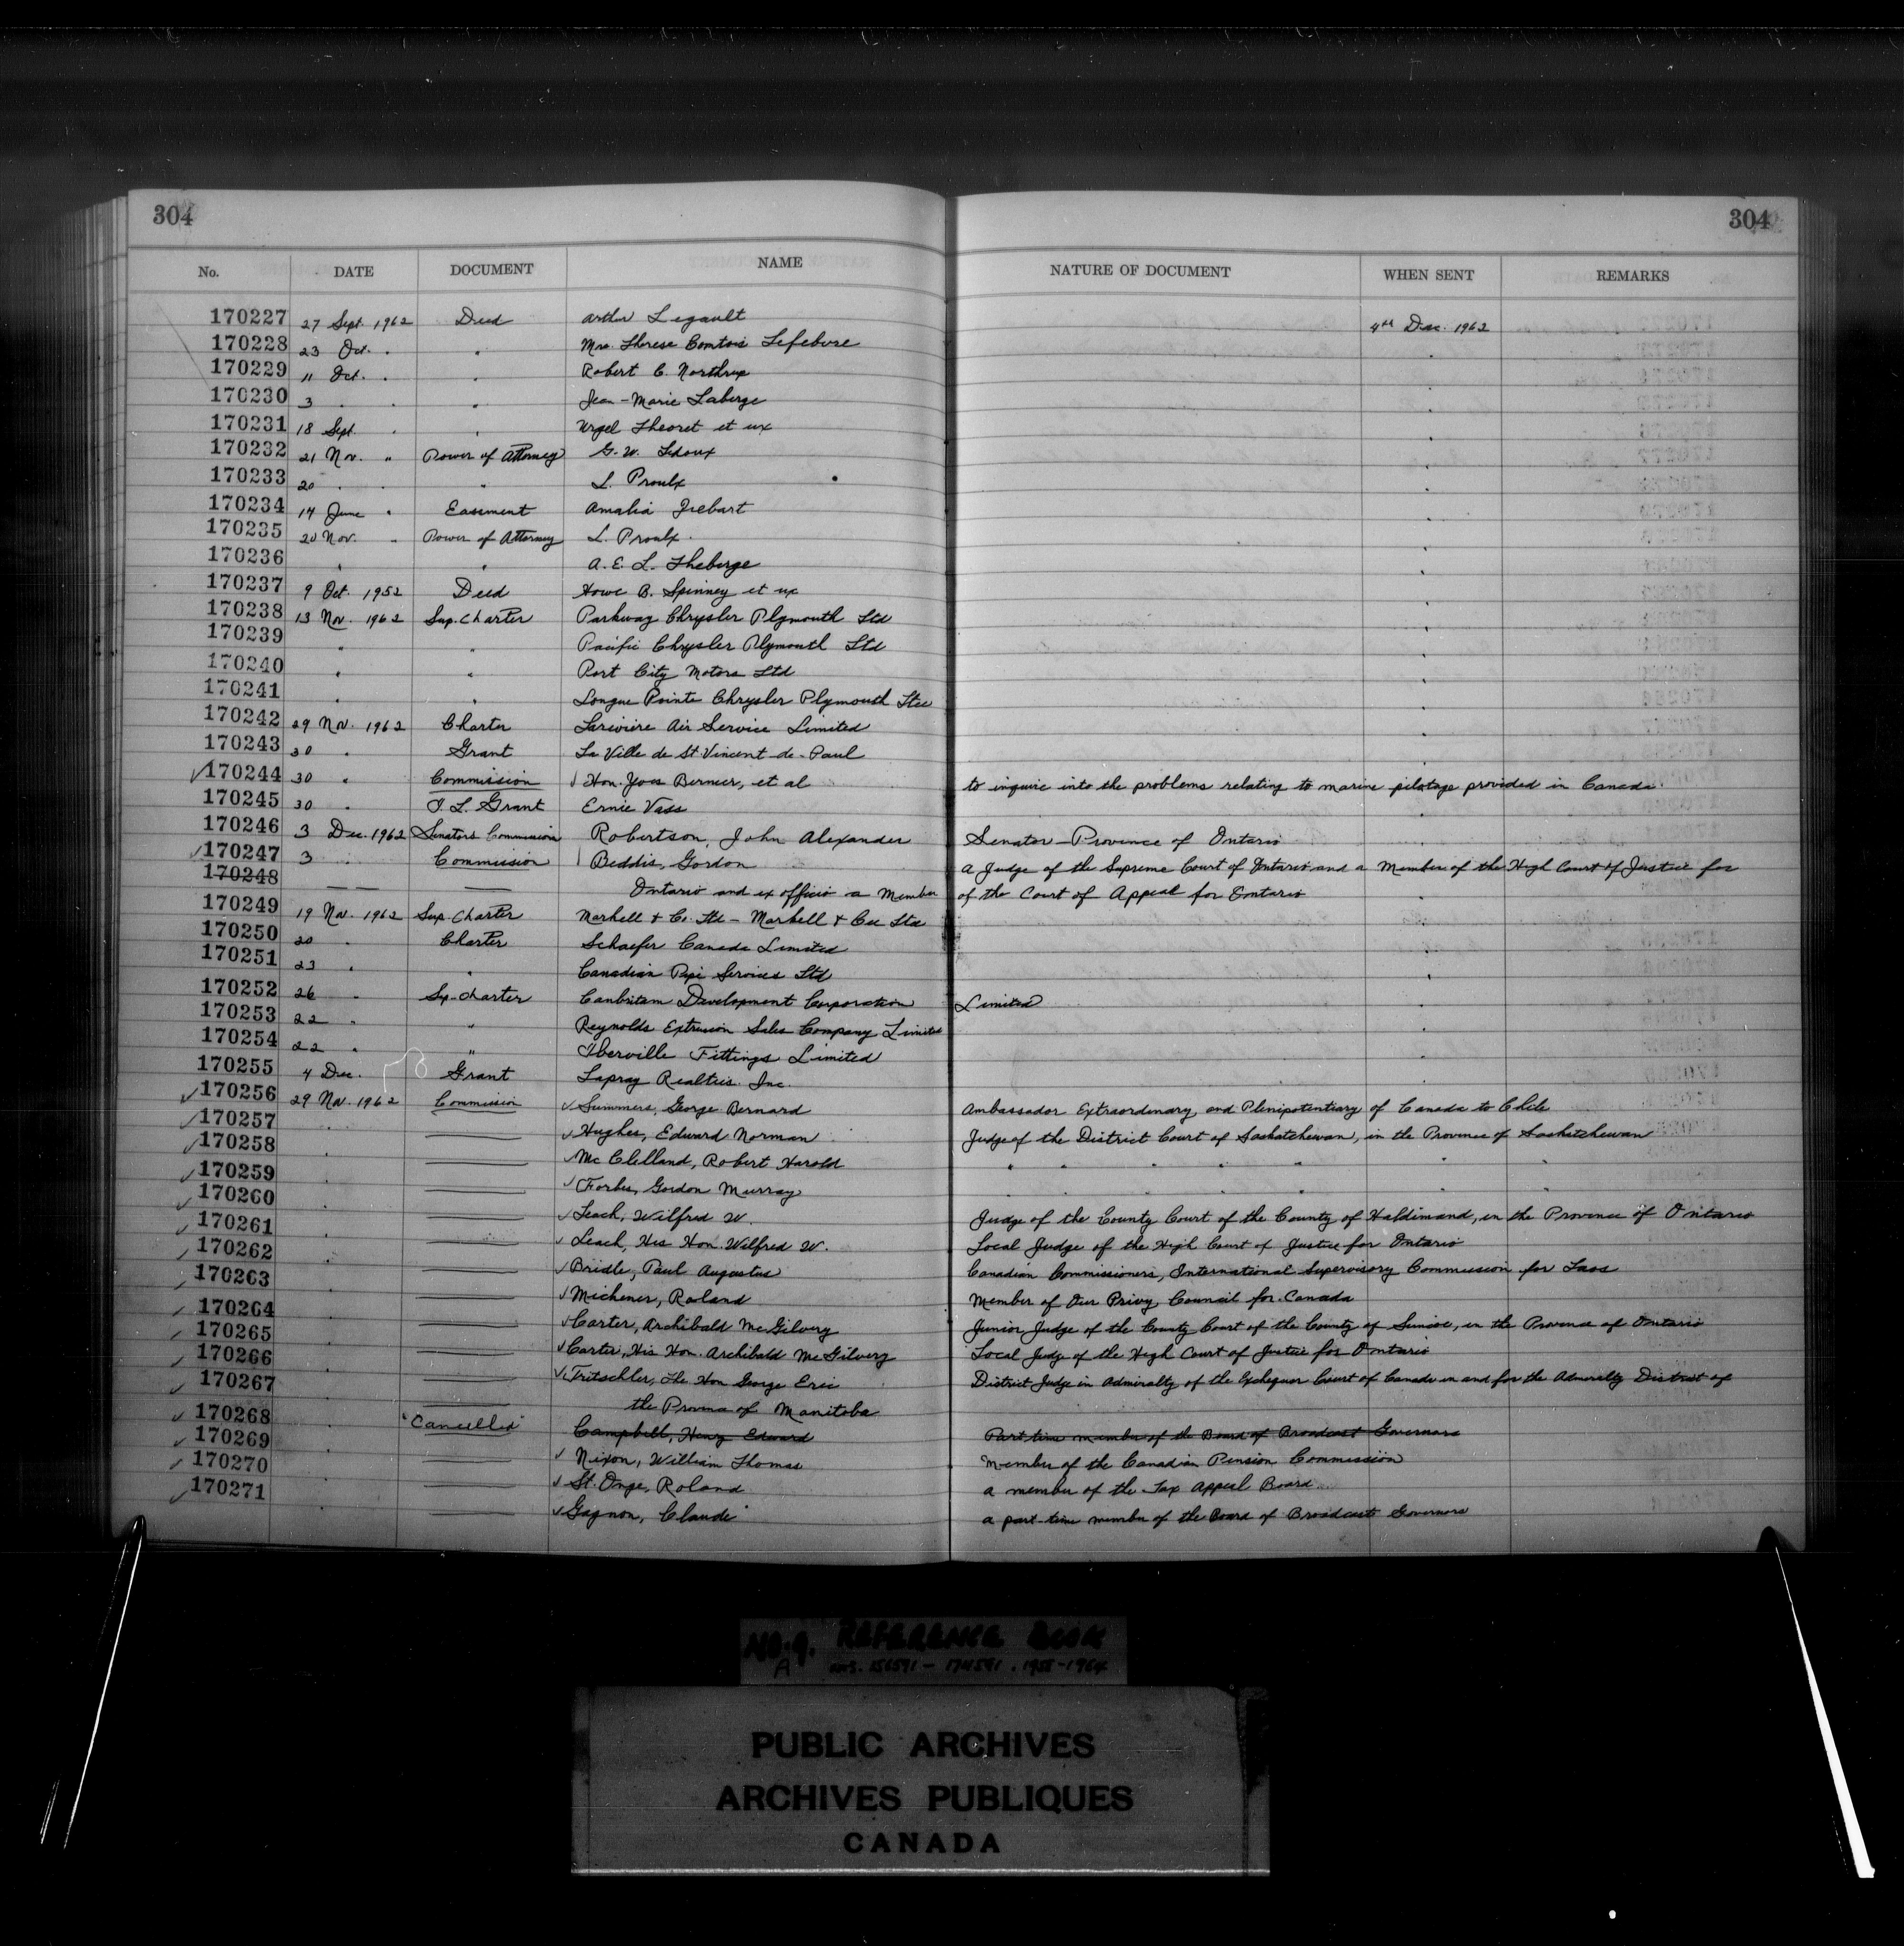 304 304
No. DATE DOCUMENT NAME NATURE OF DOCUMENT WHEN SENT REMARKS
170227 27 Sept. 1962 Deed Arthur Legault 4th Dec. 1962
170228 23 Oct. " " Mrs. Therese Comtois Lefebvre "
170229 11 Oct. " " Robert C. Northrup "
170230 3 " " " Jean-Marie Laberge "
170231 18 Sept. " " Urgel Theoret et ux "
170232 21 Nov. " Power of Attorney G. W. Ledoux "
170233 20 " " " L. Proulx "
170234 14 June " Easement Amalia "
170235 20 Nov. " Power of Attorney L. Proulx "
170236 " " A. E. L. Theberge "
170237 9 Oct. 1952 Deed Howe B. Spinney et ux "
170238 13 Nov. 1962 Sup. Charter Parkway Chrysler Plymouth Ltd "
170239 " " Pacific Chrysler Plymouth Ltd "
170240 " " Port City Motors Ltd "
170241 " " Longue Pointe Chrysler Plymouth Ltee "
170242 29 Nov. 1962 Charter Lariviere Air Service Limited "
170243 30 " Grant La Ville de St. Vincent-de-Paul "
170244 30 " Commission Hon. Yves Bernier, et al to inquire into the problems relating to marine pilotage provided in Canada.
170245 30 " T. L. Grant Ernie Vass "
170246 3 Dec. 1962 Senators Commission Robertson, John Alexander Senator - Province of Ontario "
170247 3 " Commission Beddis, Gordon a Judge of the Supreme Court of Ontario and a Member of the High Court of Justice for
170248 Ontario and ex officio a Member of the Court of Appeal for Ontario "
170249 19 Nov. 1962 Sup. Charter Markell & Co. Ltd - Markell & Cie Ltd
170250 20 " Charter Schaefer Canada Limited "
170251 23 " " Canadian Services Ltd "
170252 26 " Sp. charter Canbritam Development Corporation Limited "
170253 22 " " Reynolds Extrusion Sales Company Limited "
170254 22 " " Iberville Fittings Limited "
170255 4 Dec. Grant Realties. Inc. "
170256 29 Nov. 1962 Commission Summers, George Bernard Ambassador Extraordinary and Plenipotentiary of Canada to Chile
170257 " Hughes, Edward Norman Judge of the District Court of Saskatchewan, in the Province of Saskatchewan
170258 " McClelland, Robert Harold " " " " " " "
170259 " Forbes, Gordon Murray " " " " " " "
170260 " Leach, Wilfred W. Judge of the County Court of the County of Haldimand, in the Province of Ontario
170261 " Leach, His Hon. Wilfred W. Local Judge of the High Court of Justice for Ontario
170262 " Bridle, Paul Augustus Canadian Commissioners, International Supervisory Commission for Laos
170263 " Michener, Roland Member of Our Privy Council for Canada
170264 " Carter, Archibald McGilvery Junior Judge of the County Court of the County of Simcoe, in the Province of Ontario
170265 " Carter, His Hon. Archibald McGilvery Local Judge of the High Court of Justice for Ontario
170266 " Tritschler, The Hon George Eric District Judge in Admiralty of the Exchequer Court of Canada in and for the Admiralty District of
170267 the Province of Manitoba
170268 " "Cancelled" Campbell, Henry Edward Part time member of the Board of Broadcast Governors
170269 " Nixon, William Thomas member of the Canadian Pension Commission
170270 " St. Onge, Roland a member of the Tax Appeal Board
170271 " Gagnon, Claude a part-time member of the Board of Broadcast Governors
NO. 9. REFERENCE BOOK
A nos. 156591 - 174591. 1955-1964
PUBLIC ARCHIVES
ARCHIVES PUBLIQUES
CANADA